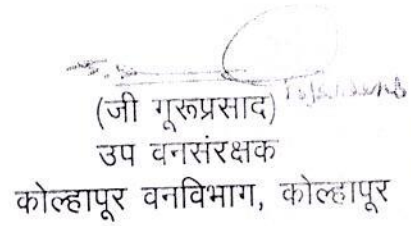 (जी गूरूप्रसाद)
उप वनसंरक्षक
कोल्हापूर वनविभाग, कोल्हापूर